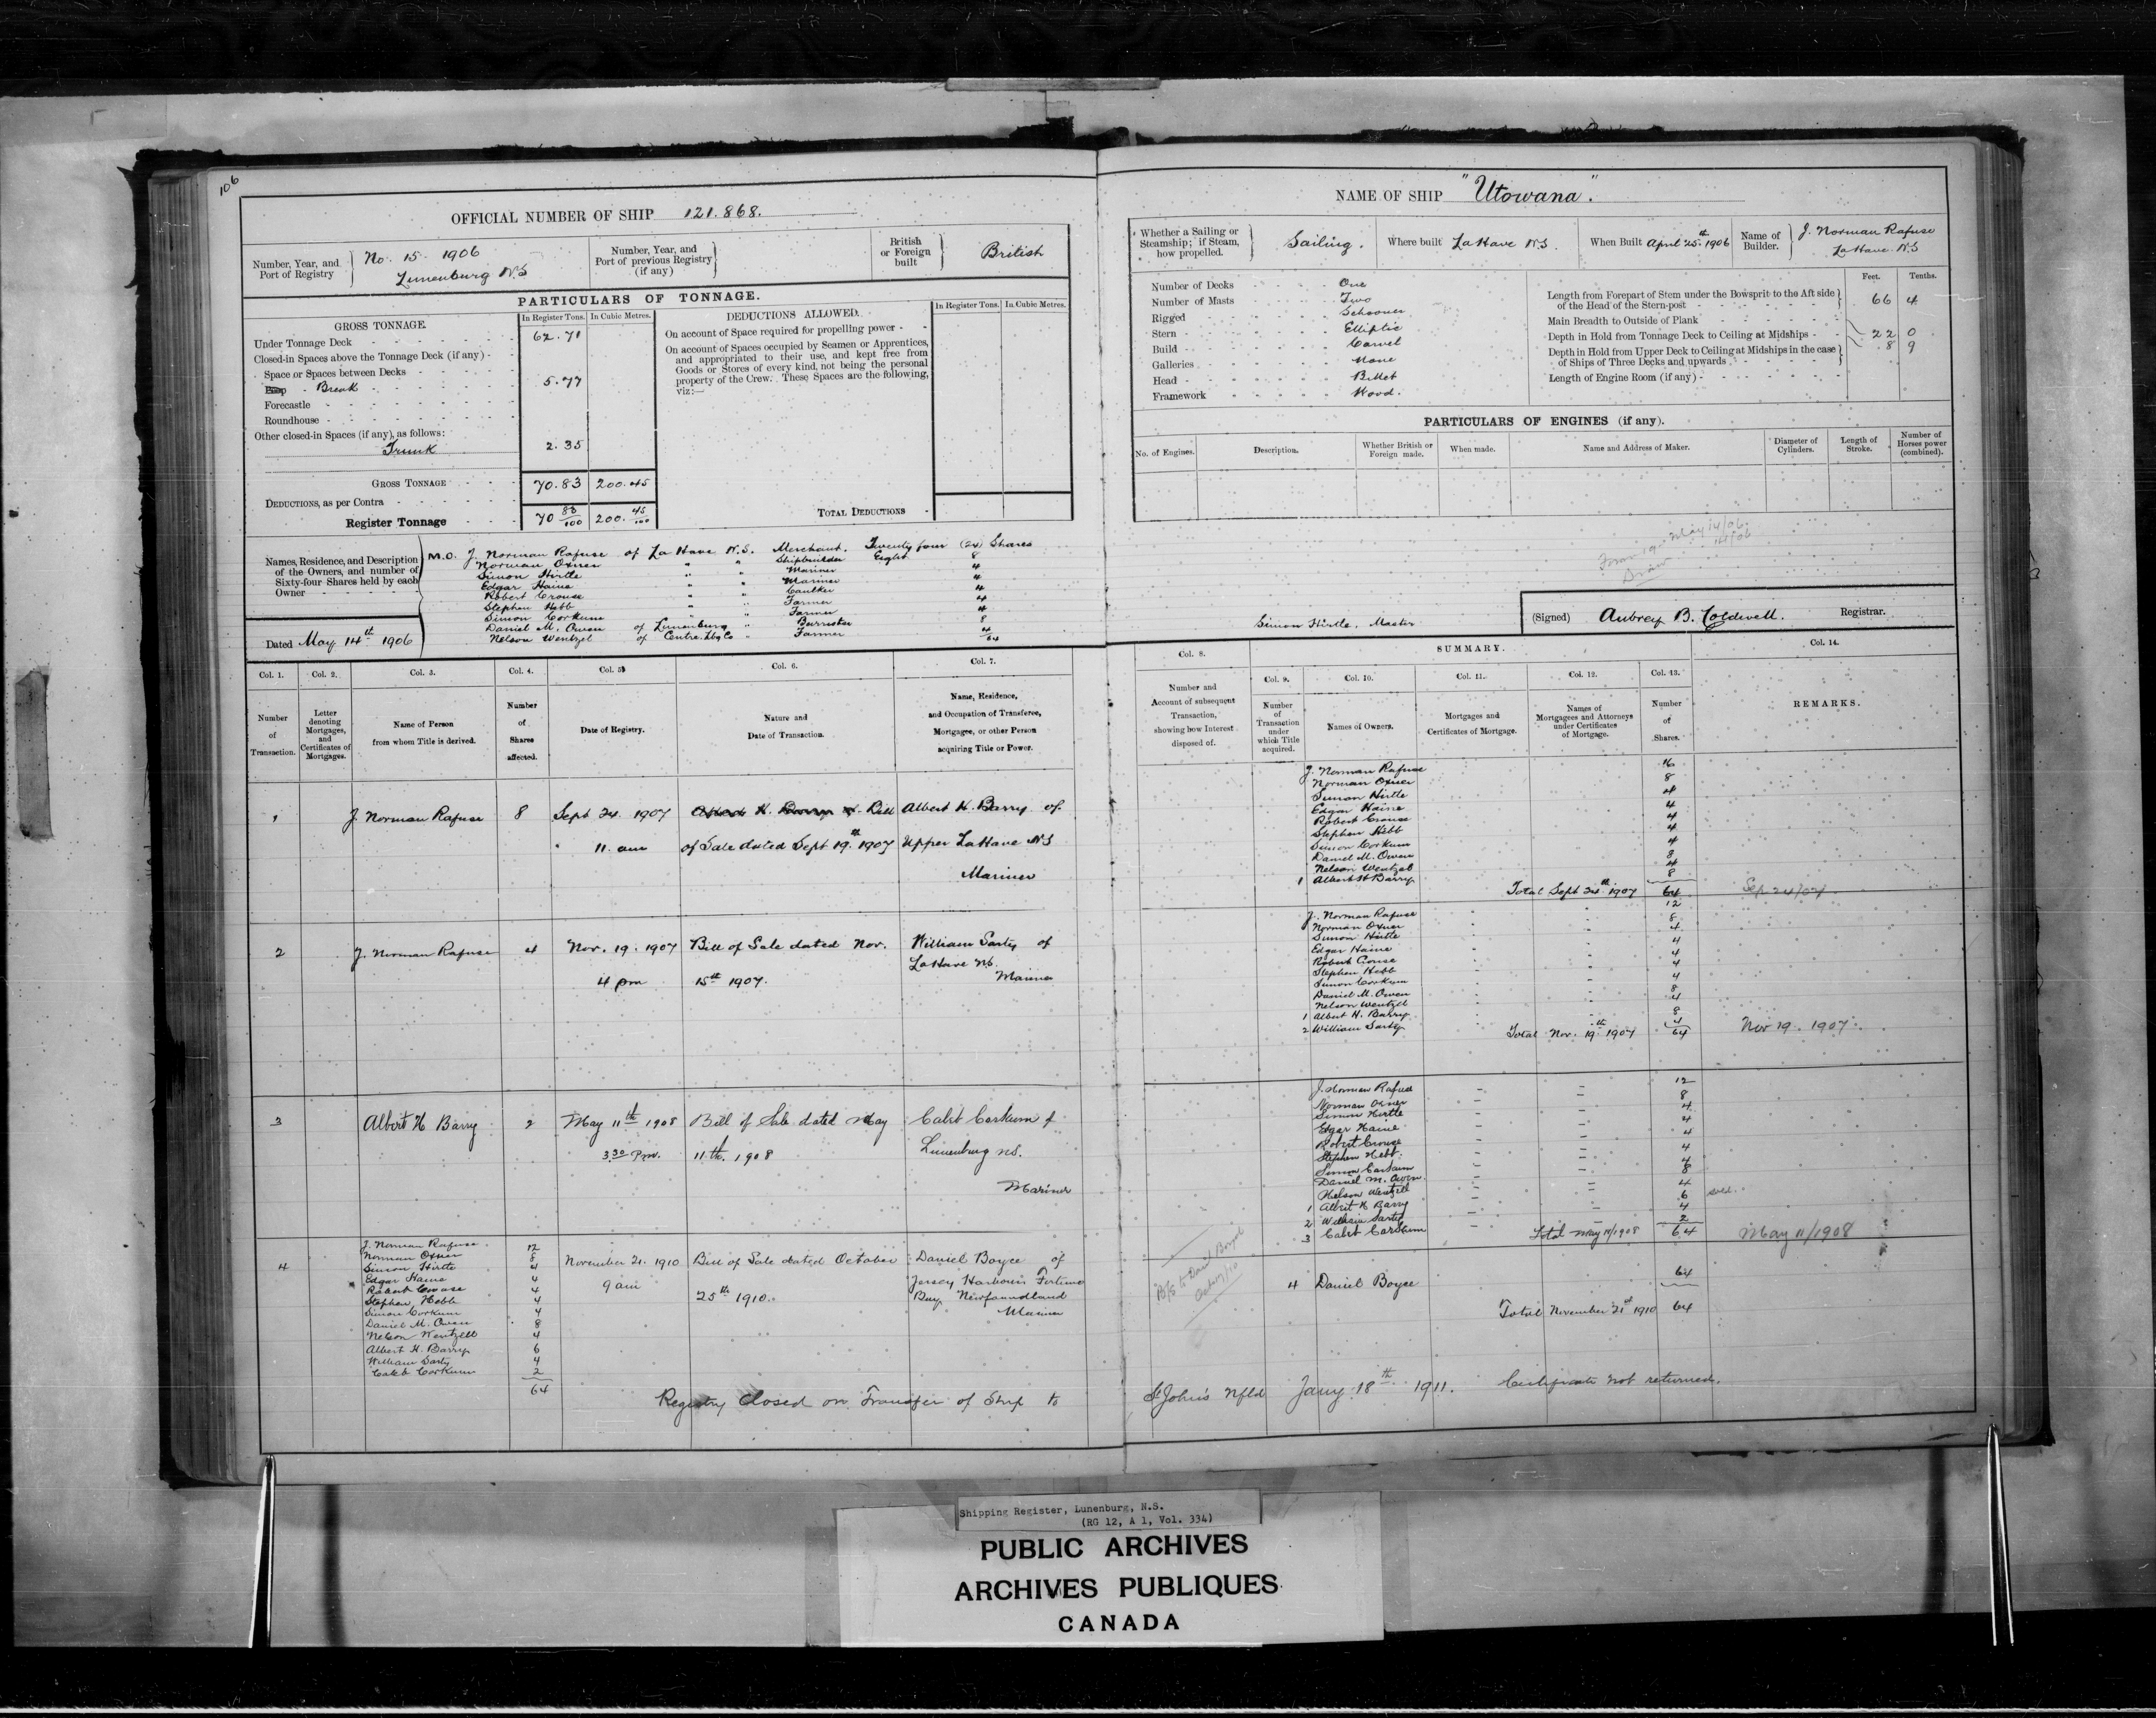 106
OFFICIAL NUMBER OF SHIP 121.868.
Number, Year, and Port of Registry
No. 15. 1906
Lunenburg N.S
Number, Year, and Port of previous Registry (if any)
British or Foreign built
British
PARTICULARS OF TONNAGE.
GROSS TONNAGE.
In Register Tons. In Cubic Metres.
Under Tonnage Deck 62.71
Closed-in Spaces above the Tonnage Deck (if any) -
Space or Spaces between Decks
Poop - Break 5.77
Forecastle
Roundhouse
Other closed-in Spaces (if any), as follows:
Trunk 2.35
GROSS TONNAGE 70.83 200.45
DEDUCTIONS, as per Contra
Register Tonnage 70 83/100 200. 45/100
DEDUCTIONS ALLOWED.
In Register Tons. In Cubic Metres.
On account of Space required for propelling power -
On account of Spaces occupied by Seamen or Apprentices,
and appropriated to their use, and kept free from
Goods or Stores of every kind, not being the personal
property of the Crew. These Spaces are the following,
viz:—
TOTAL DEDUCTIONS
Names, Residence, and Description
of the Owners, and number of
Sixty-four Shares held by each
Owner
M.O. J. Norman Rafuse of La Have N.S. Merchant. Twenty four (24) Shares
Norman Oxner " " Shipbuilder Eight 8
Simon Hirtle " " Mariner 4
Edgar Haine " " Mariner 4
Robert Crouse " " Caulker 4
Stephen Hebb " " Farmer 4
Simon Corkum " " Farmer 4
Daniel M. Owen of Lunenburg " Barrister 8
Nelson Wentzel of Centre, Lbg Co " Farmer 4
64
Dated May 14th 1906
Col. 1. Col. 2. Col. 3. Col. 4. Col. 5. Col. 6. Col. 7.
Number of Transaction.
Letter denoting Mortgages, and Certificates of Mortgages.
Name of Person from whom Title is derived.
Number of Shares affected.
Date of Registry.
Nature and Date of Transaction.
Name, Residence, and Occupation of Transferee, Mortgagee, or other Person acquiring Title or Power.
1 J. Norman Rafuse 8 Sept 24. 1907 Bill Albert H. Barry of
11. am of Sale dated Sept 19th 1907 Upper LaHave NS
Mariner
2 J. Norman Rafuse 4 Nov. 19. 1907 Bill of Sale dated Nov. William Sarty of
LaHave NS.
4 pm 15th 1907. Mariner
3 Albert H Barry 2 May 11th 1908 Bill of Sale dated May Calet Corkum of
3.30 Pm. 11th. 1908 Lunenburg NS.
Mariner
4
J. Norman Rafuse 12
Norman Oxner 8
Simon Hirtle 4
Edgar Haine 4
Robert Crouse 4
Stephen Hebb 4
Simon Corkum 4
Daniel M. Owen 8
Nelson Wentzell 4
Albert H. Barry 6
William Sarty 4
Caleb Corkum 2
64
November 21. 1910 Bill of Sale dated October Daniel Boyce of
9 am 25th 1910. Jersey Harbour Fortune
Bay Newfoundland
Mariner
Registry Closed on Transfer of Ship to
NAME OF SHIP "Utowana".
Whether a Sailing or Steamship; if Steam, how propelled.
Sailing.
Where built LaHave N.S.
When Built April 25th 1906
Name of Builder.
J. Norman Rafuse
LaHave N.S
Number of Decks One
Number of Masts Two
Rigged Schooner
Stern Elliptic
Build Carvel
Galleries None
Head Billet
Framework Wood.
Feet. Tenths.
Length from Forepart of Stem under the Bowsprit to the Aft side
of the Head of the Stern-post 66 4
Main Breadth to Outside of Plank
Depth in Hold from Tonnage Deck to Ceiling at Midships - 22 0
Depth in Hold from Upper Deck to Ceiling at Midships in the case
of Ships of Three Decks and upwards 8 9
Length of Engine Room (if any)
PARTICULARS OF ENGINES (if any).
No. of Engines.
Description.
Whether British or Foreign made.
When made.
Name and Address of Maker.
Diameter of Cylinders.
Length of Stroke.
Number of Horses power (combined).
Form 19 May 14/06
14/06
Simon Hirtle, Master
(Signed) Aubrey B. Coldwell. Registrar.
Col. 8.
SUMMARY.
Col. 9. Col. 10. Col. 11. Col. 12. Col. 13. Col. 14.
Number and Account of subsequent Transaction, showing how Interest disposed of.
Number of Transaction under which Title acquired.
Names of Owners.
Mortgages and Certificates of Mortgage.
Names of Mortgagees and Attorneys under Certificates of Mortgage.
Number of Shares.
REMARKS.
J. Norman Rafuse 16
Norman Oxner 8
Simon Hirtle 4
Edgar Haine 4
Robert Crouse 4
Stephen Hebb 4
Simon Corkum 4
Daniel M. Owen 8
Nelson Wentzel 4
1 Albert H Barry 8
Total Sept 24th 1907 64 Sep 24/07
J. Norman Rafuse 12
Norman Oxner 8
Simon Hirtle 4
Edgar Haine 4
Robert Crouse 4
Stephen Hebb 4
Simon Corkum 4
Daniel M. Owen 8
Nelson Wentzel 4
1 Albert H. Barry 8
2 William Sarty 4
Total Nov. 19th 1907 64 Nov 19. 1907.
J. Norman Rafuse 12
Norman Oxner 8
Simon Hirtle 4
Edgar Haine 4
Robert Crouse 4
Stephen Hebb 4
Simon Corkum 4
Daniel M. Owen 8
Nelson Wentzell 4
1 Albert H Barry 6
2 William Sarty 4
3 Calet Corkum 2
Total May 11/1908 64 May 11/1908
B/S to Daniel Boyce
4 Daniel Boyce 64
Total November 21st 1910 64
St John's Nfld Jany 18th 1911. Certificate not returned.
Shipping Register, Lunenburg, N.S.
(RG 12, A 1, Vol. 334)
PUBLIC ARCHIVES
ARCHIVES PUBLIQUES
CANADA